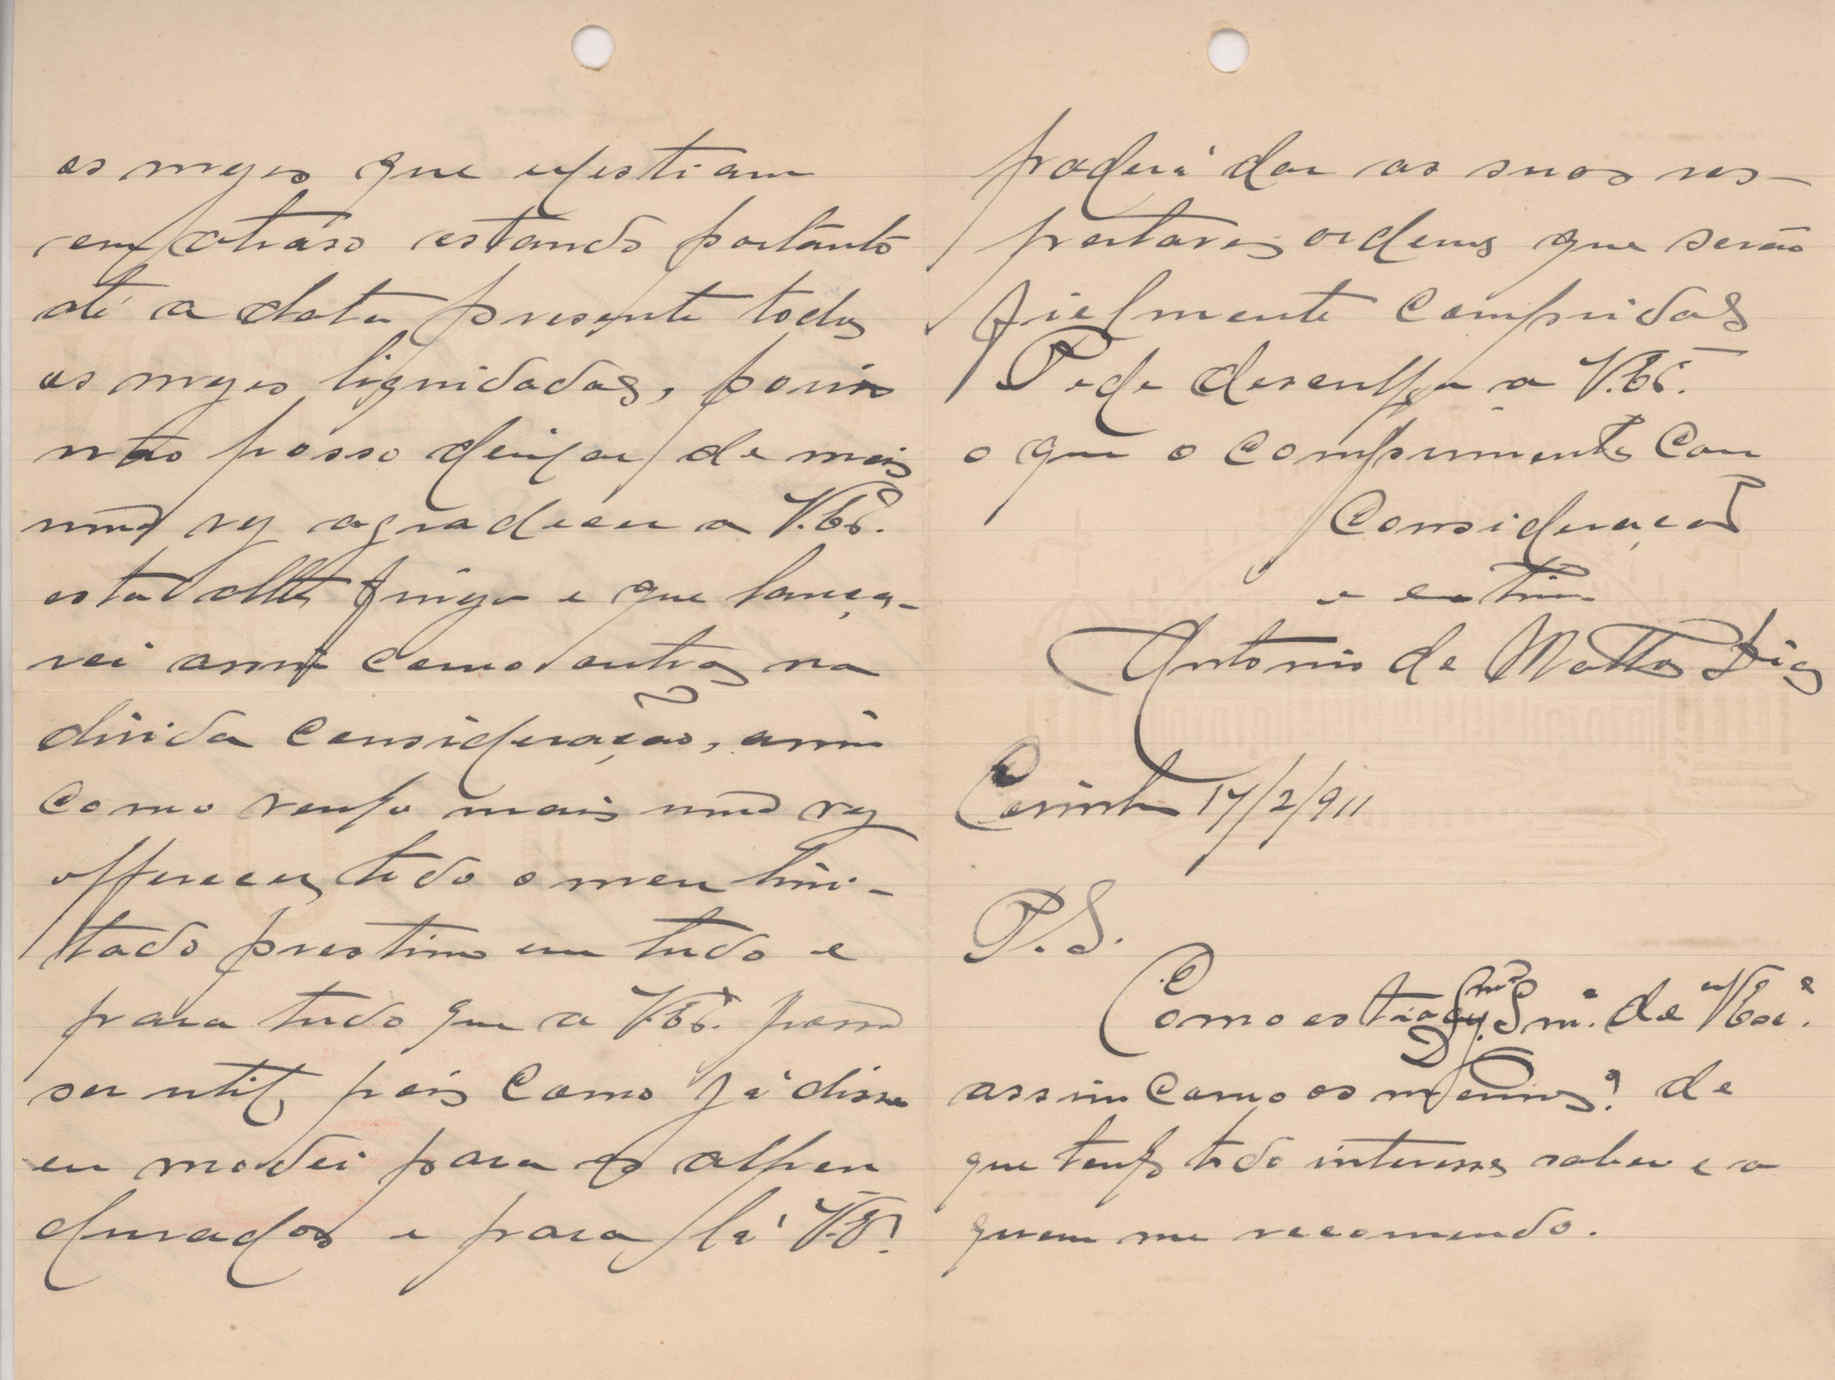 as mezes que existiam
em atraso estando portanto
até a data presente todas
as mezes liquidadas, porém
não posso deixar de mais
uma vez agradecer a V. Exª.
esta alta fineza e que lança-
rei assim como outras na
divida consideração, assim
como venho mais uma vez
offerecer todo o meu limi-
tado prestimo em tudo e
para tudo que a V. Exª. possa
ser util, pois como já disse
eu mudei para os
e para lá V. Exª.
poderá dar as suas res-
peitaveis ordens que serão
fielmente compridas
Pede desculpa a V. Exª.
o que o comprimenta com
Consideração
e estima
Antonio de Mattos Dias
17/2/911
P.S.
Como está a Exmª Snrª. D. de V. Exª.
assim como os meninos? de
que tenho todo interesse saber e a
quem me recomendo.